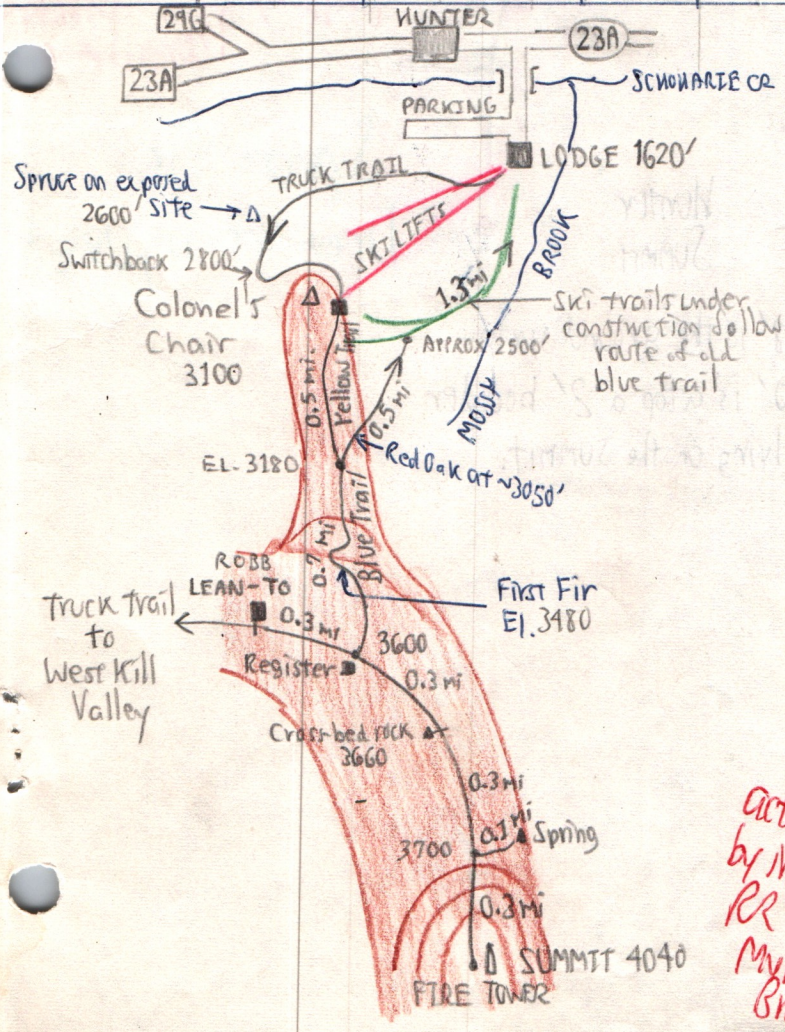 29C
HUNTER
23A
23A
SCHOHARIE CR
PARKING
LODGE 1620'
TRUCK TRAIL
Spruce on exposed
2600' Site
SKI LIFTS
BROOK
Switchback 2800'
1.3 mi
Colonel's
Chair
3100
Ski trails under
construction follow
route of old
blue trail
APPROX 2500'
0.5 mi.
Yellow Trail
0.5 mi
MOSSY
EL. 3180
Red Oak at ~3050'
0.7 mi
Blue Trail
ROBB
LEAN-TO
First Fir
El. 3480
Truck Trail
to
West Kill
Valley
0.3 mi
3600
Register
0.3 mi
Cross-bed rock
3660
0.3 mi
0.1 mi
Spring
3700
0.3 mi
SUMMIT 4040
FIRE TOWER
by
RR